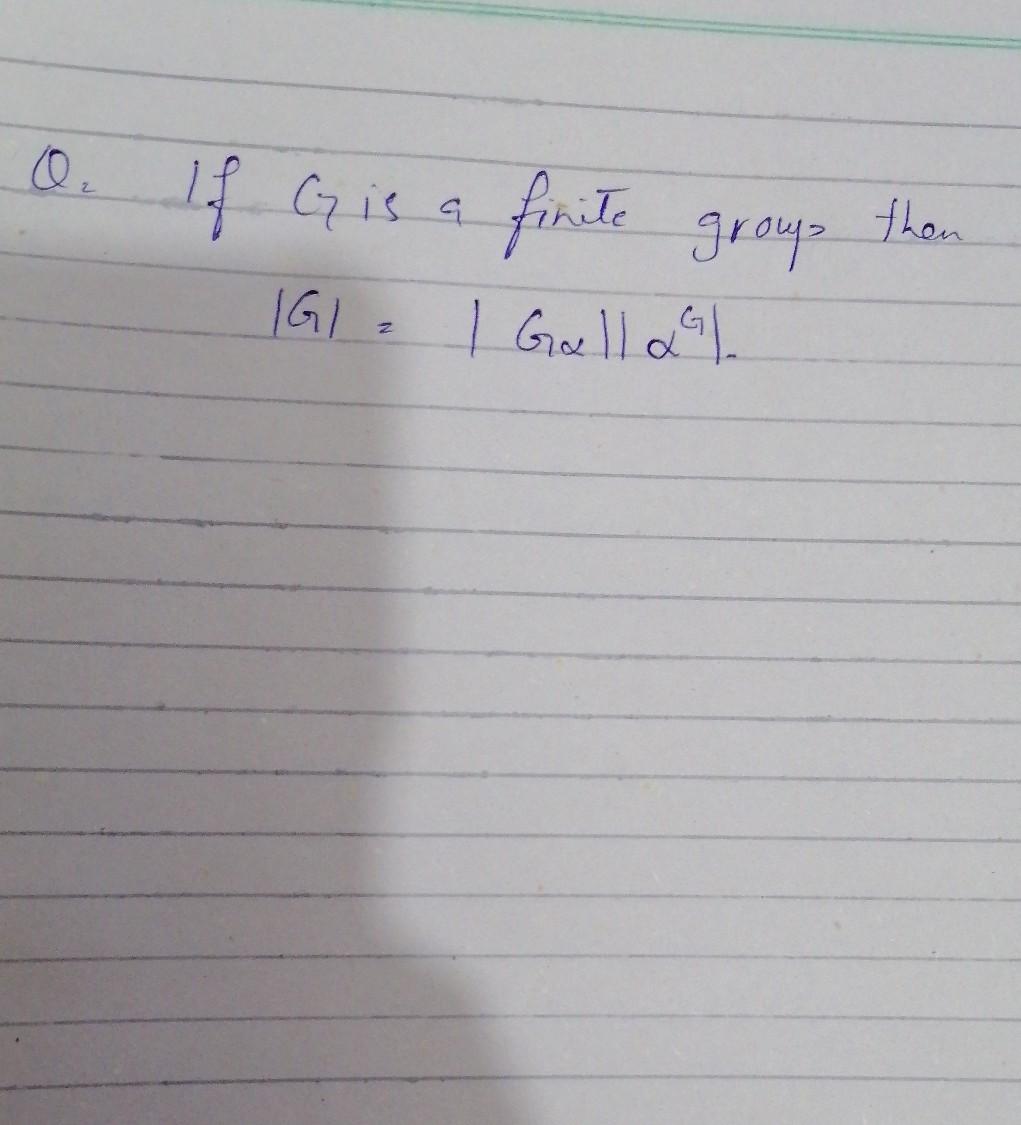 Q. If G is a finite group then
|G| = |Gα||α^G|.